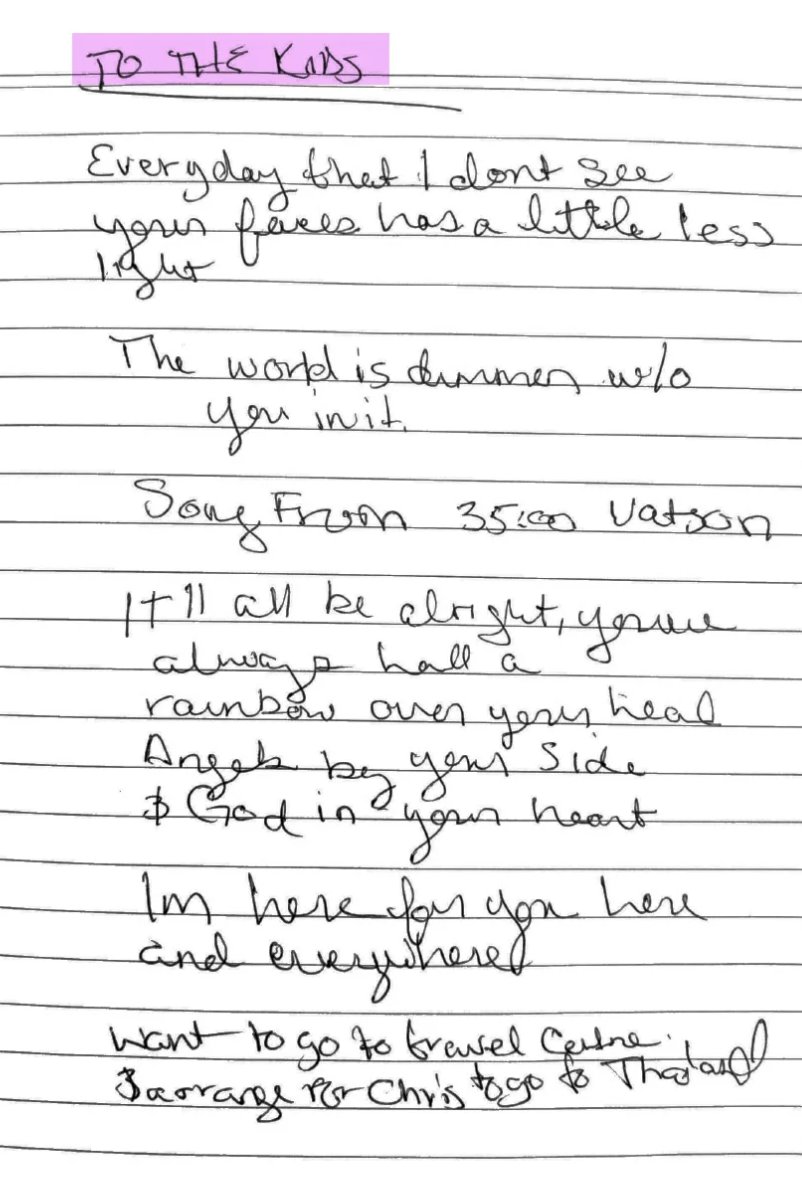 TO THE KIDS
Everyday that I dont see
your faces has a little less
light
The world is dimmer w/o
you in it.
Song From 35:00 Watson
It'll all be alright, you
always hall a
rainbow over your head
Angels by your side
& God in your heart
Im here for you here
and everywhere
Want to go to travel Centre.
& aorrange for Chris to go to Thailand